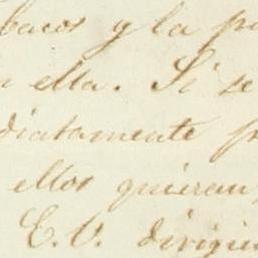 bacos y la po
n ella. Si se
diatamente p
ellos quieran,
E. V. dirigien